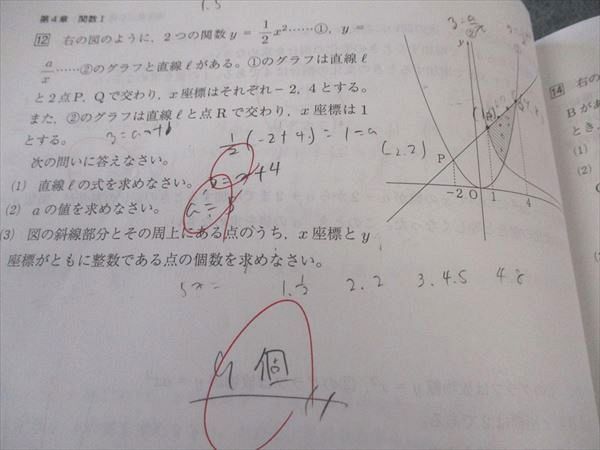 1.5
第4章 関数I
12 右の図のように,2つの関数 y = 1/2 x²……①, y =
a/x……②のグラフと直線ℓがある。①のグラフは直線ℓ
と2点P, Qで交わり, x座標はそれぞれ−2, 4とする。
また, ②のグラフは直線ℓと点Rで交わり, x座標は1
とする。
1/2(-2+4)=1=a
次の問いに答えなさい。
(1) 直線ℓの式を求めなさい。
(2) aの値を求めなさい。
a=5
(3) 図の斜線部分とその周上にある点のうち, x座標とy
座標がともに整数である点の個数を求めなさい。
1.1/2 2.2 3.4.5 4.8
9個
y
(-2.2)
P
-2 O 1 4
14 右の
Bがあ
とき,
(1)
(2)